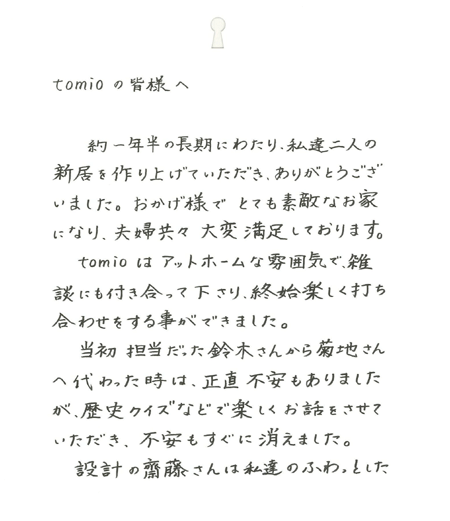 tomio の皆様へ
約一年半の長期にわたり、私達二人の
新居を作り上げていただき、ありがとうござ
いました。おかげ様で とても素敵なお家
になり、夫婦共々 大変満足しております。
tomio は アットホームな雰囲気で、雑
談にも付き合って下さり、終始楽しく打ち
合わせをする事ができました。
当初 担当だった鈴木さんから菊地さん
へ代わった時は、正直 不安もありました
が、歴史クイズなどで楽しくお話をさせて
いただき、不安もすぐに消えました。
設計の齋藤さんは私達のふわっとした